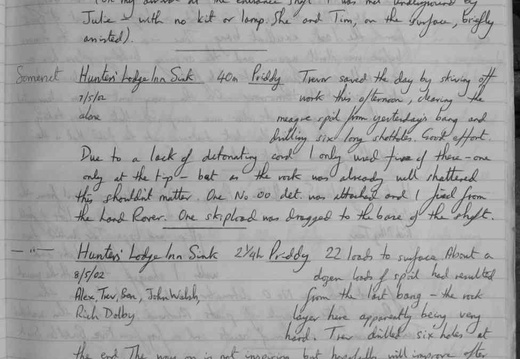 my arrival at the entrance shaft I was met underground by
Julie - with no kit or lamp. She and Tim, on the surface, briefly
assisted).
Somerset Hunters' Lodge Inn Sink 40m Priddy Trevor saved the day by skiving off
7/5/02 work this afternoon, clearing the
alone meagre spoil from yesterday's bang and
drilling six long shotholes. Good effort.
Due to a lack of detonating cord I only used five of these - one
only at the tip - but as the rock was already well shattered
this shouldn't matter. One No 00 det. was attached and I fired from
the Land Rover. One skipload was dragged to the base of the shaft.
— " — Hunters' Lodge Inn Sink 2¼h Priddy 22 loads to surface. About a
8/5/02 dozen loads of spoil had resulted
Alex, Trev, Ben, John Walsh, from the last bang - the rock
Rich Dolby layer here apparently being very
hard. Trev drilled six holes at
the end. The way on is not inspiring but hopefully will improve after